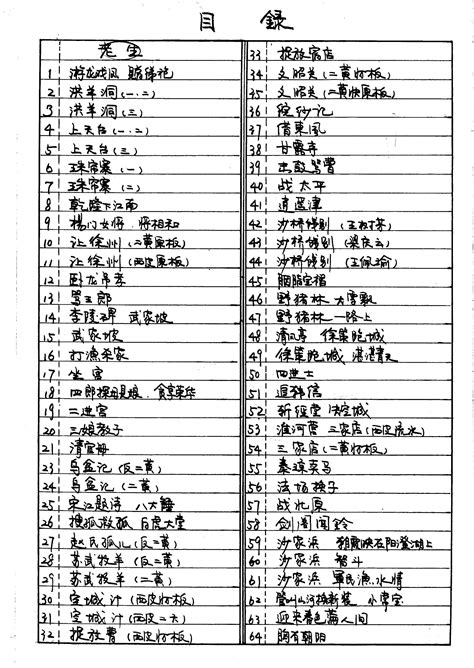 目 録
老生
1 游龙戏凤 赐绨袍
2 洪羊洞(一.二)
3 洪羊洞(三)
4 上天台(一.二)
5 上天台(三)
6 珠帘寨(一)
7 珠帘寨(二)
8 乾隆下江南
9 楊门女将.将相和
10 让徐州(二黄原板)
11 让徐州(西皮原板)
12 卧龙吊孝
13 骂王郎
14 李陵碑 武家坡
15 武家坡
16 打渔杀家
17 坐宫
18 四郎探母见娘.食享荣华
19 二进宫
20 三娘教子
21 清官册
23 乌盆记(反二黄)
24 乌盆记(二黄)
25 宋江题诗 八大锤
26 搜孤救孤 白虎大堂
27 赵氏孤儿(反二黄)
28 苏武牧羊(反二黄)
29 苏武牧羊(二黄)
30 空城计(西皮慢板)
31 空城计(西皮二六)
32 捉放曹(西皮慢板)
33 捉放宿店
34 文昭关(二黄慢板)
35 文昭关(二黄快原板)
36 浣纱记
37 借東風
38 甘露寺
39 击鼓骂曹
40 战太平
41 逍遥津
42 沙桥餞别
43 沙桥餞别
44 沙桥餞别(王佩瑜)
45 胭脂宝褶
46 野猪林 大雪飘
47 野猪林一路上
48 清风亭 徐策跑城
49 徐策跑城 湛湛青天
50 四进士
51 追韩信
52 斩经堂 决空城
53 淮河营 三家店(西皮流水)
54 三家店(二黄慢板)
55 秦琼卖马
56 法场换子
57 战北原
58 剑阁闻铃
59 沙家浜 朝霞映在阳澄湖上
60 沙家浜 智斗
61 沙家浜 軍民漁水情
62 管叫山河换新装 小常宝
63 迎来春色换人间
64 胸有朝阳